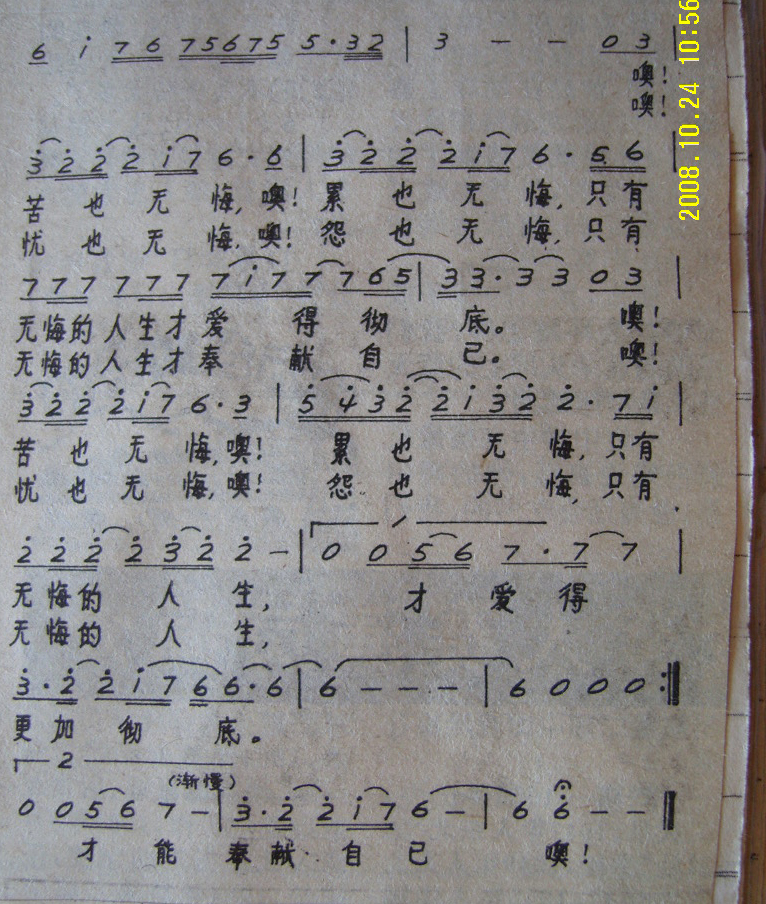 6 i 7 6 7 5 6 7 5 5 · 3 2 | 3 — — 0 3 |
噢!
噢!
3 2 2 2 i 7 6 · 6 | 3 2 2 2 i 7 6 · 5 6 |
苦 也 无 悔, 噢! 累 也 无 悔, 只 有
忧 也 无 悔, 噢! 怨 也 无 悔, 只 有
7 7 7 7 7 7 7 i 7 7 7 6 5 | 3 3 · 3 3 0 3 |
无 悔 的 人 生 才 爱 得 彻 底。 噢!
无 悔 的 人 生 才 奉 献 自 己。 噢!
3 2 2 2 i 7 6 · 3 | 5 4 3 2 2 i 3 2 2 · 7 i |
苦 也 无 悔, 噢! 累 也 无 悔, 只 有
忧 也 无 悔, 噢! 怨 也 无 悔, 只 有
1
2 2 2 2 3 2 2 — | 0 0 5 6 7 · 7 7 |
无 悔 的 人 生, 才 爱 得
无 悔 的 人 生,
3 · 2 2 i 7 6 6 · 6 | 6 — — — | 6 0 0 0 :|
更 加 彻 底。
2
(渐慢)
0 0 5 6 7 — | 3 · 2 2 i 7 6 — | 6 6 — — |
才 能 奉 献 自 己 噢!
2008.10.24 10:56